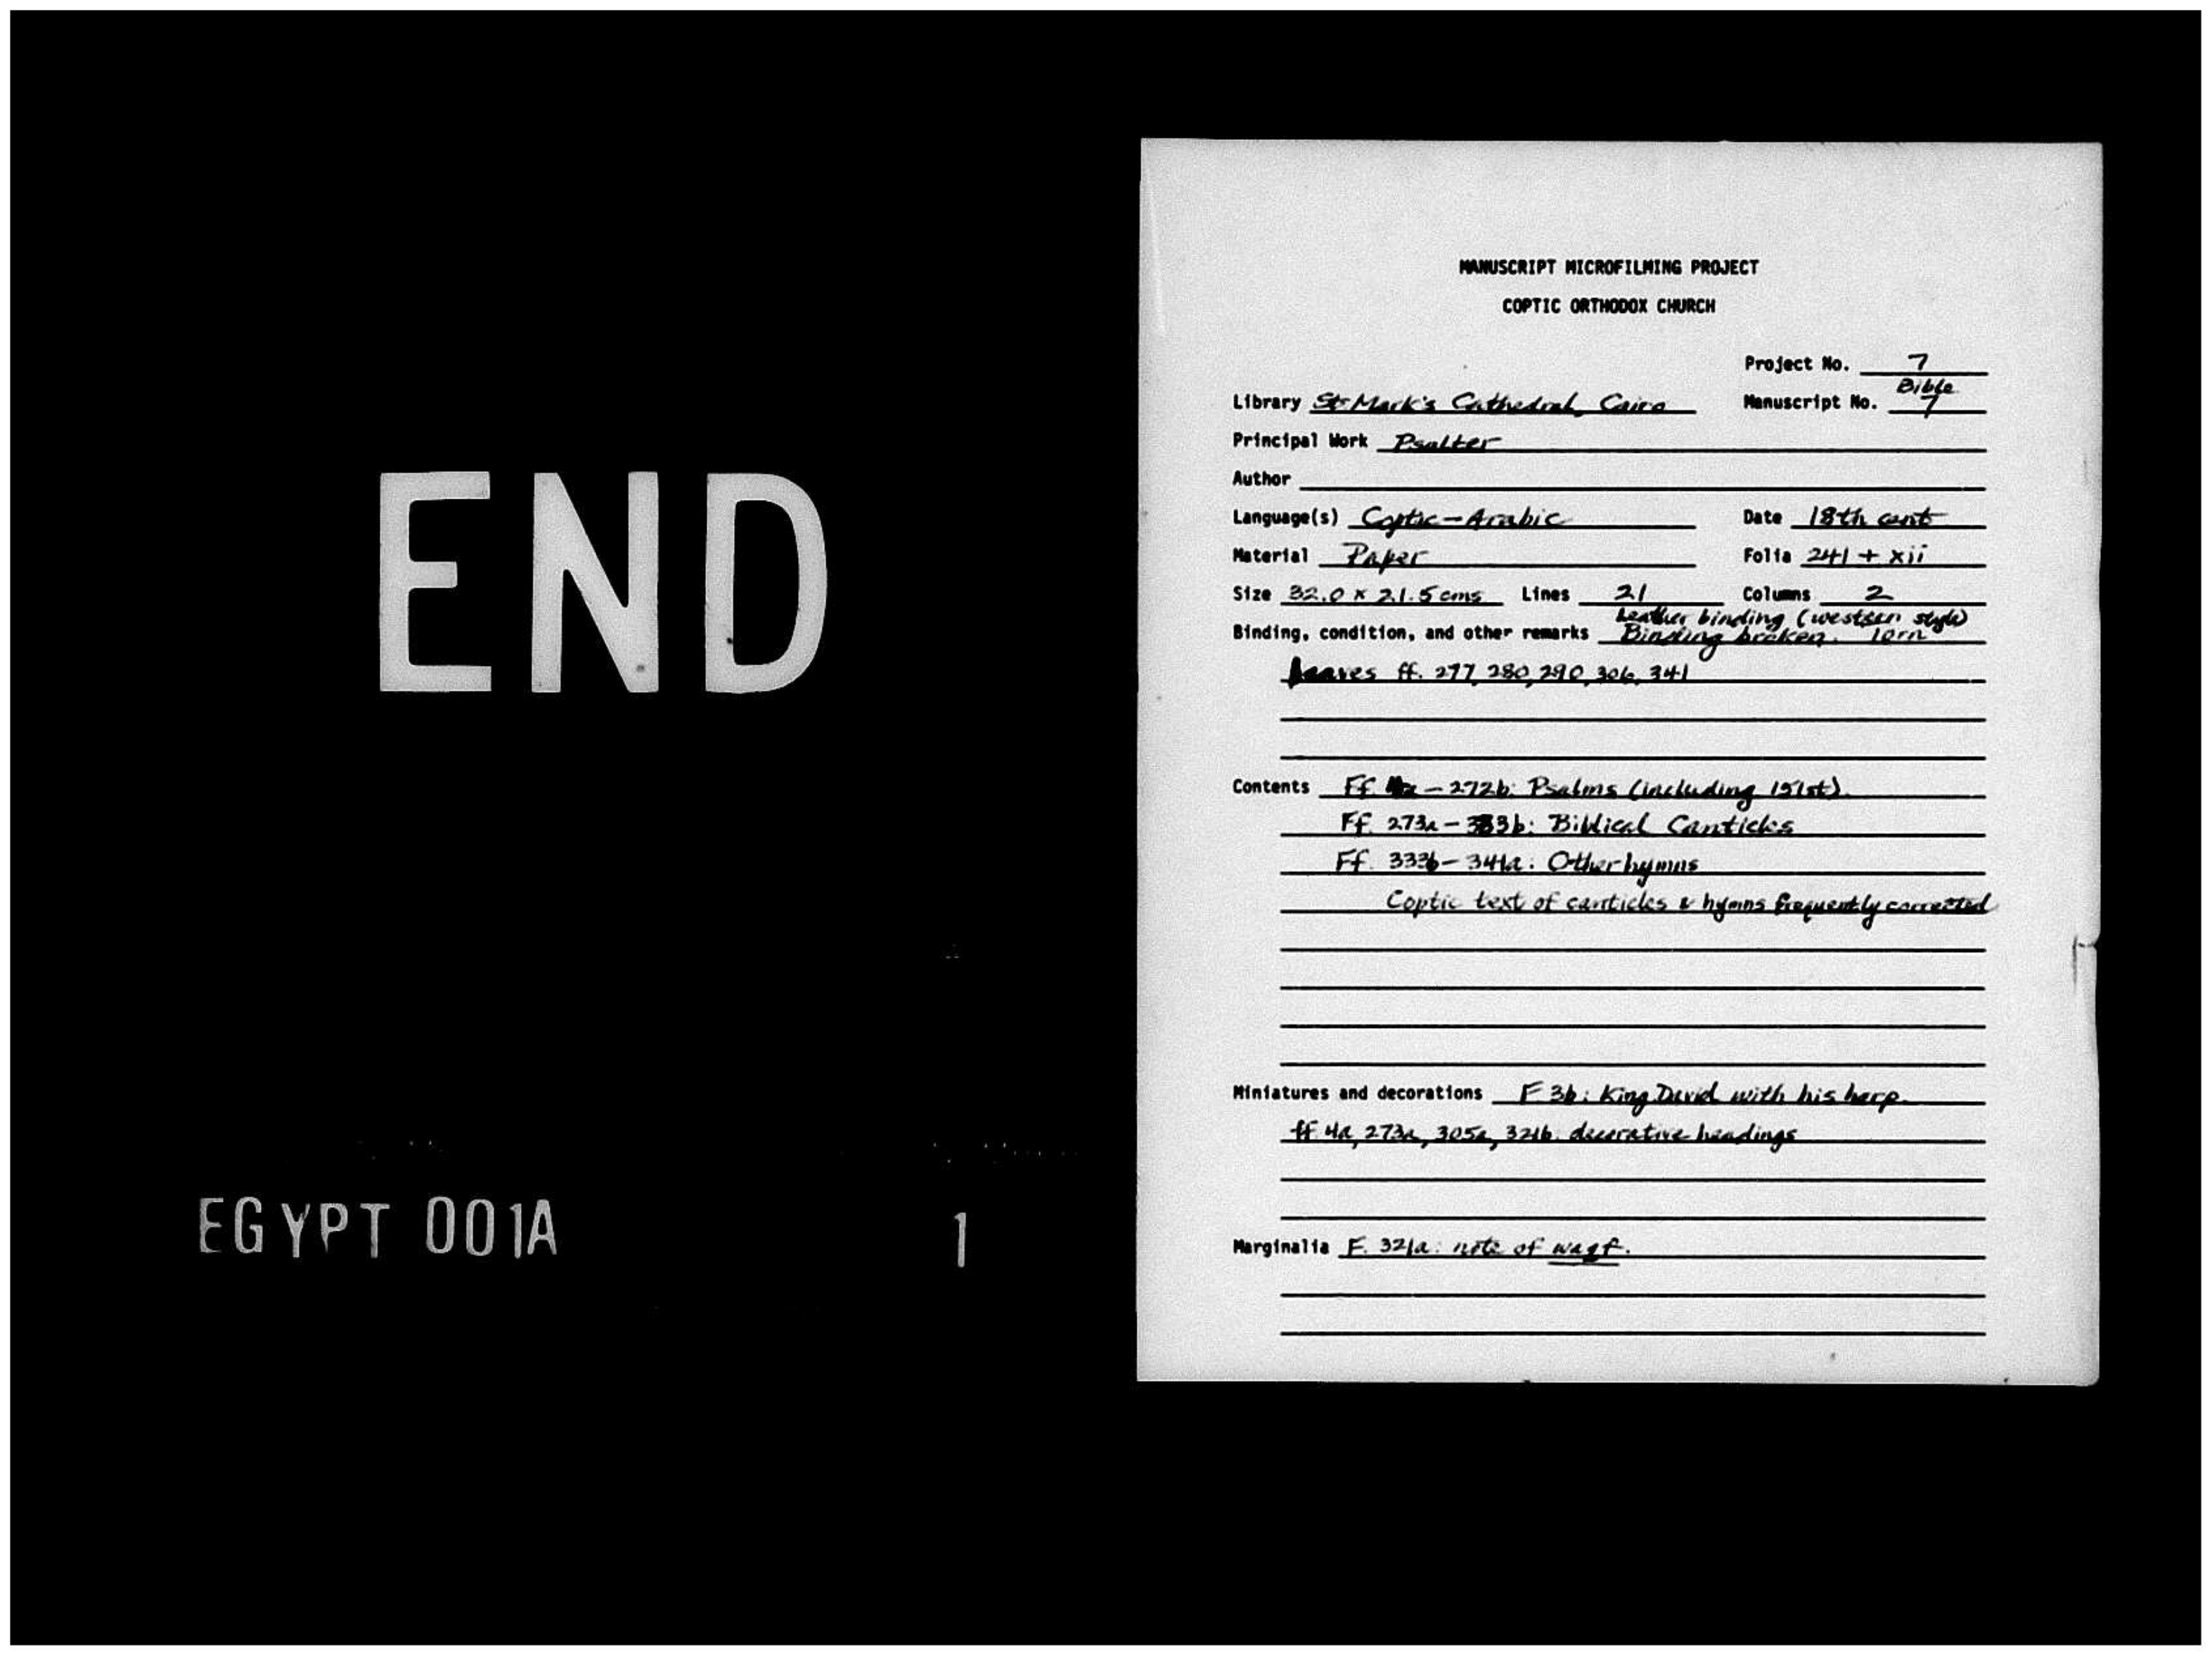 END
EGYPT 001A 1
MANUSCRIPT MICROFILMING PROJECT
COPTIC ORTHODOX CHURCH
Project No. 7
Library St. Mark's Cathedral, Cairo Manuscript No. Bible 7
Principal Work Psalter
Author
Language(s) Coptic-Arabic Date 18th cent
Material Paper Folia 241 + xii
Size 32.0 x 21.5 cms Lines 21 Columns 2
Leather binding (western style)
Binding, condition, and other remarks Binding broken. Torn
leaves ff. 277, 280, 290, 306, 341
Contents Ff. - 272b: Psalms (including 151st).
Ff. 273a - 333b: Biblical Canticles
Ff. 333b - 341a: Other hymns
Coptic text of canticles & hymns frequently corrected
Miniatures and decorations F 3b: King David with his harp.
ff. 4a, 273a, 305a, 321b: decorative headings
Marginalia F. 321a: note of waqf.